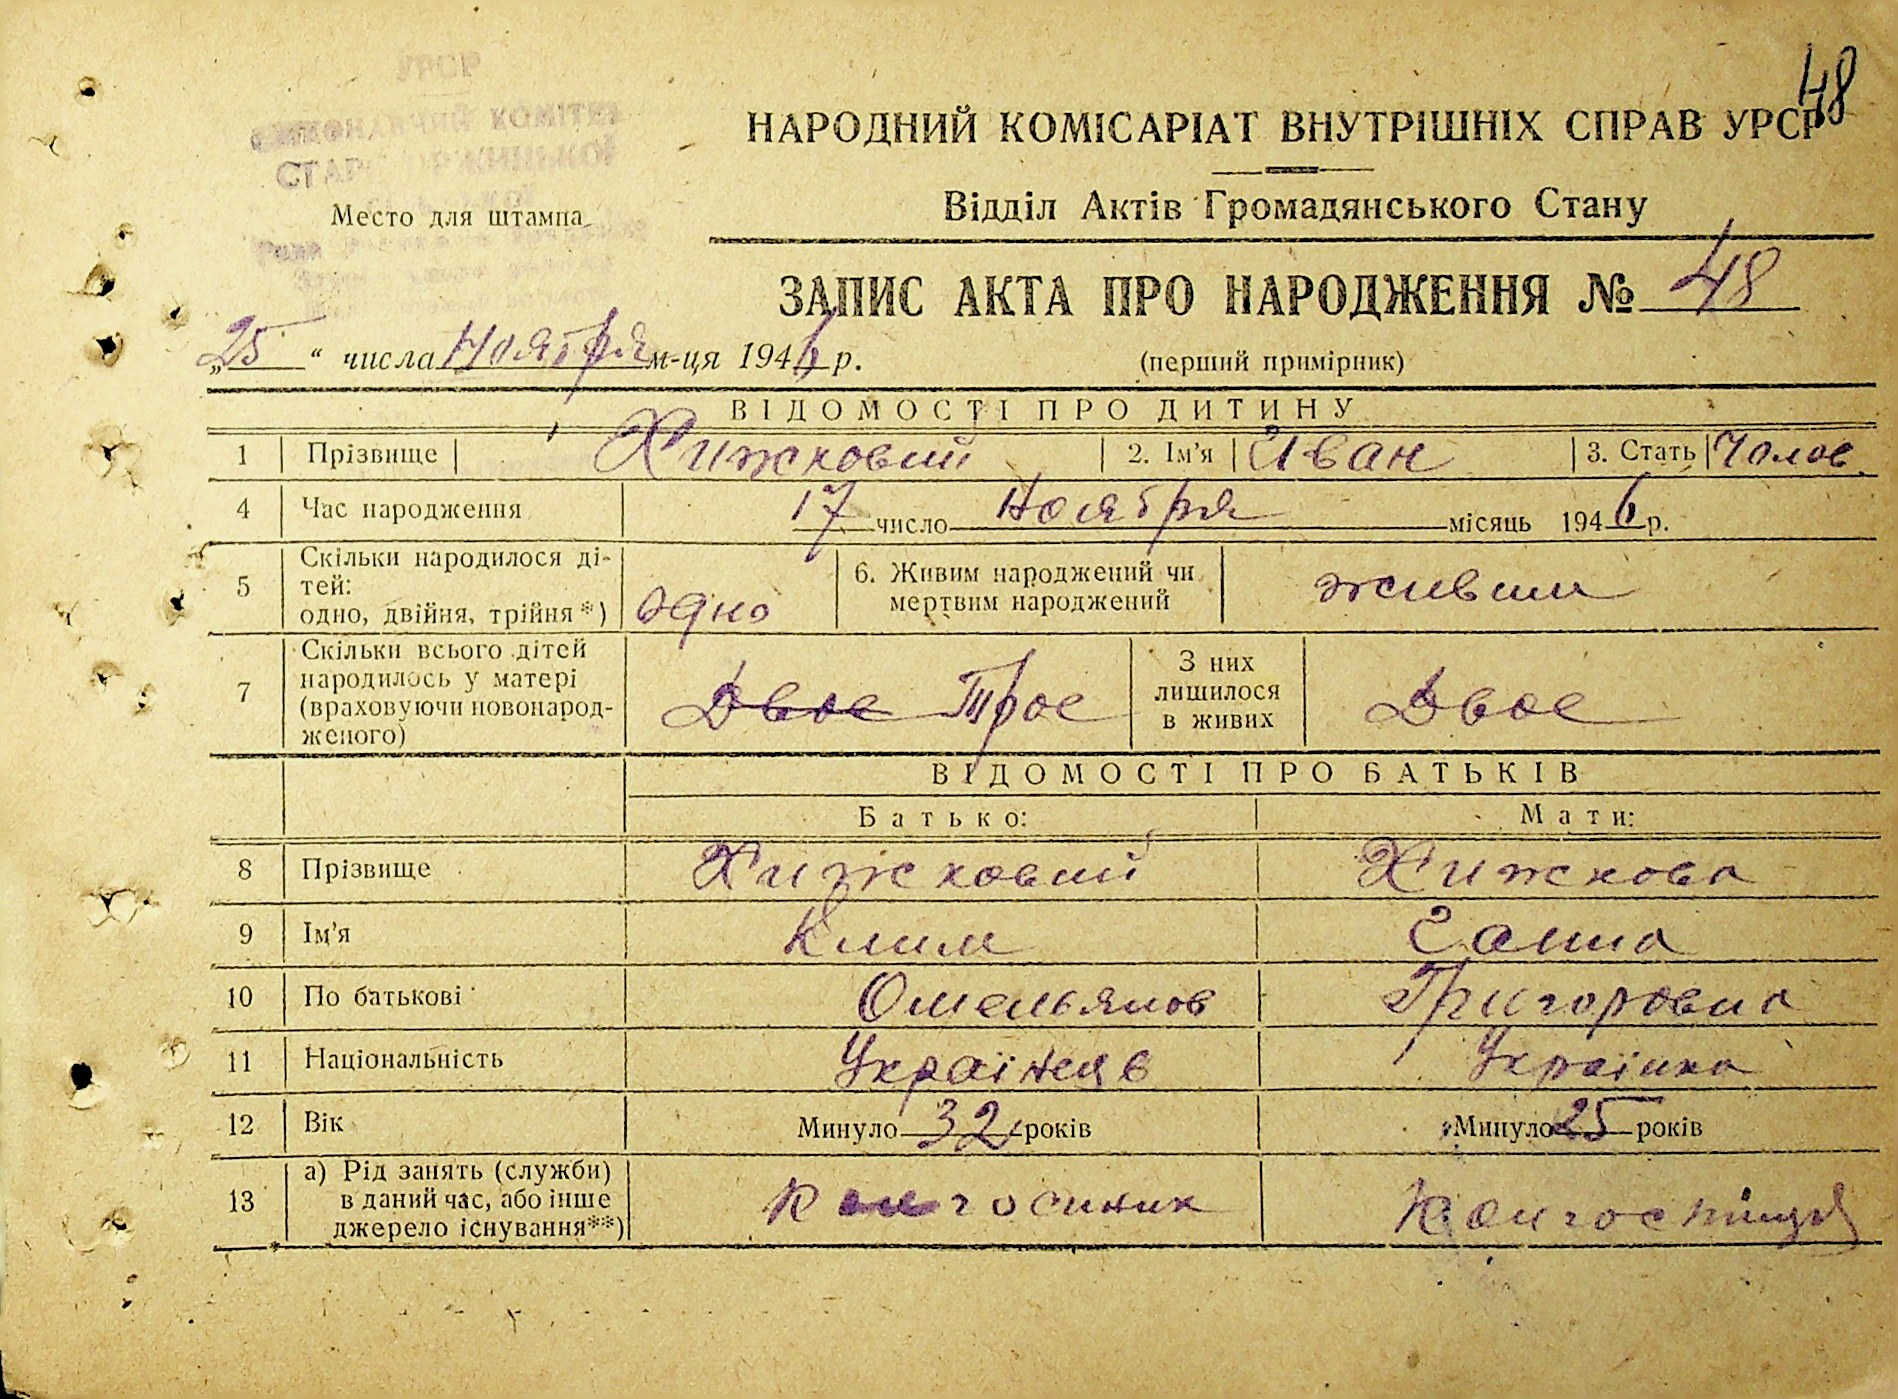 48
УРСР
ВИКОНАВЧИЙ КОМІТЕТ
НАРОДНИЙ КОМІСАРІАТ ВНУТРІШНІХ СПРАВ УРСР
Место для штампа
Відділ Актів Громадянського Стану
ЗАПИС АКТА ПРО НАРОДЖЕННЯ № 48
„25“ числа Ноября м-ця 1946 р.
(перший примірник)
ВІДОМОСТІ ПРО ДИТИНУ
1 Прізвище Хижковий 2. Ім'я Иван 3. Стать Чолов
4 Час народження 17 число Ноября місяць 1946 р.
5 Скільки народилося ді-
тей:
одно, двійня, трійня *) одно
6. Живим народжений чи
мертвим народжений живим
7 Скільки всього дітей
народилось у матері
(враховуючи новонарод-
женого) Двое Трое
З них
лишилося
в живих Двое
ВІДОМОСТІ ПРО БАТЬКІВ
Батько: Мати:
8 Прізвище Хижковий Хижкова
9 Ім'я Клим Ганна
10 По батькові Омельянов Григоровна
11 Національність Українець Українка
12 Вік Минуло 32 років Минуло 25 років
13 а) Рід занять (служби)
в даний час, або інше
джерело існування**) Колгоспник Колгоспниця